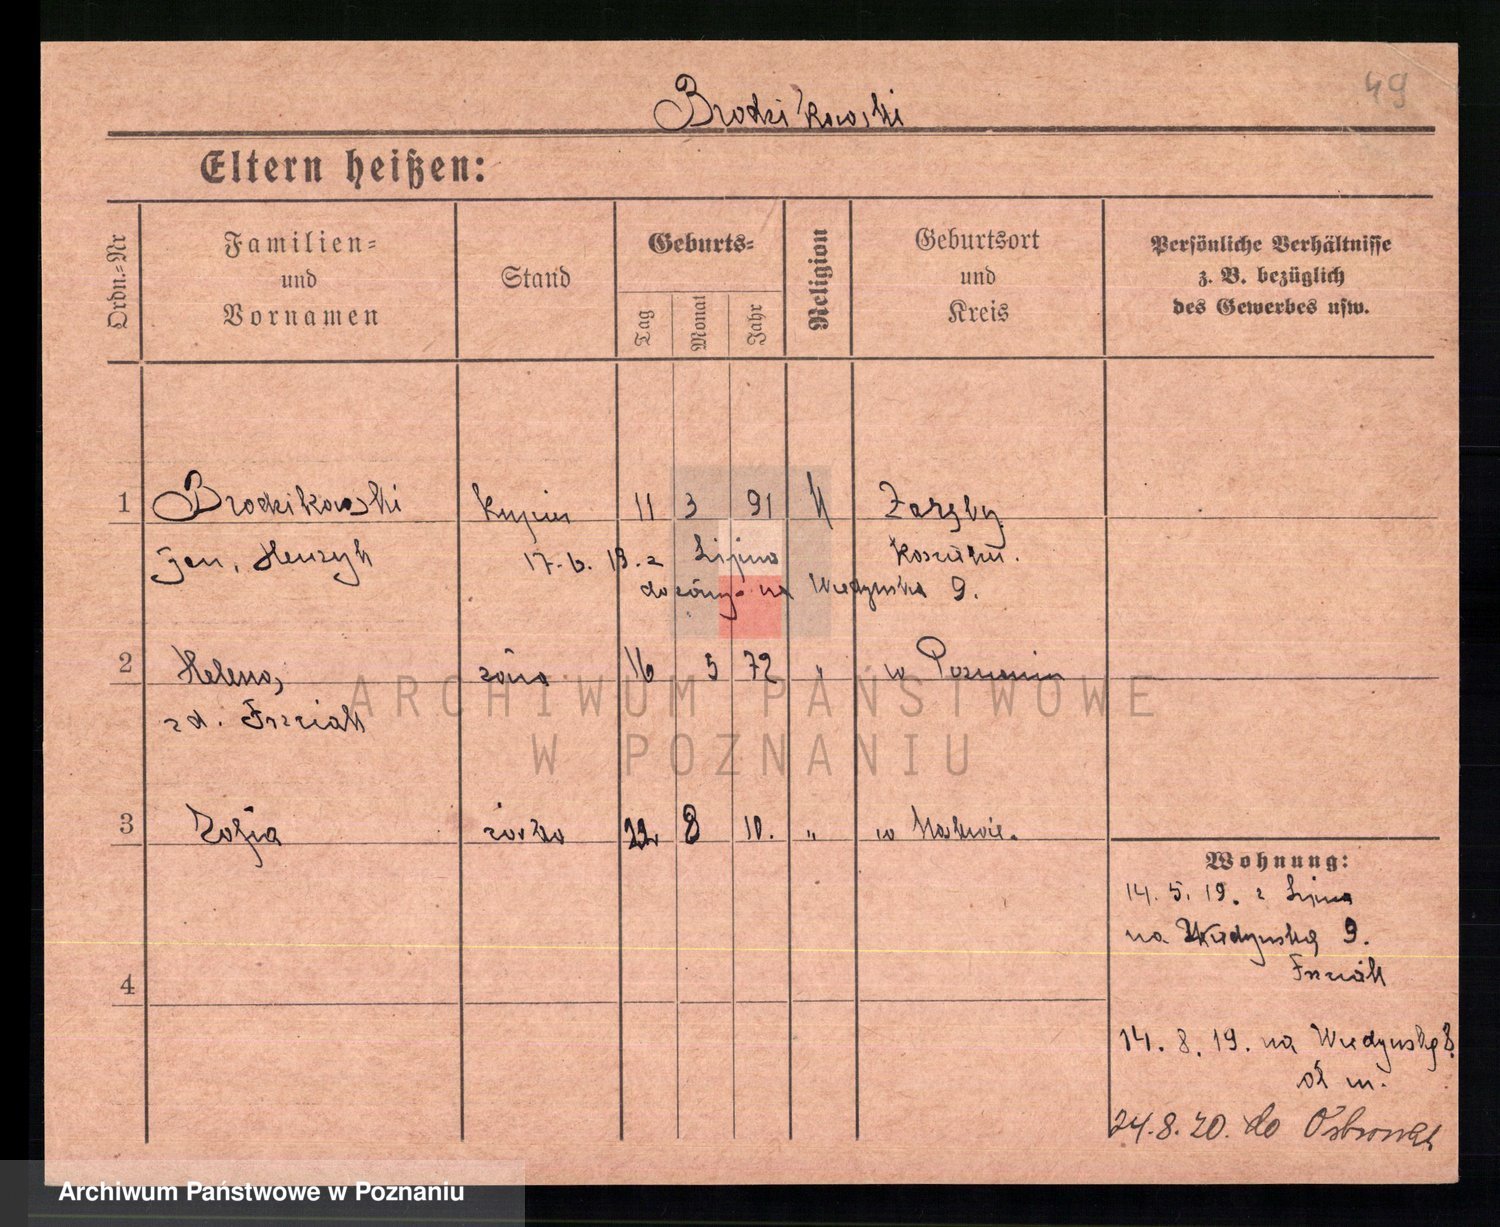 49
Brodzikowski
Eltern heißen:
Ordn.-Nr
Familien-
und
Vornamen
Stand
Geburts-
Tag
Monat
Jahr
Religion
Geburtsort
und
Kreis
Persönliche Verhältnisse
z. B. bezüglich
des Gewerbes usw.
1 Brodzikowski kupiec 11 3 91 Zaręby
Jan, Henryk 17. 6. 19. z Lipina
do żony na Wiedyńska 9.
2 Helena, żona 16 5 72 " w Poznaniu
zd. Frasiak
3 Zofja córka 22 8 10. " w
Wohnung:
14. 5. 19. z Lipina
na Wiedyńską 9.
4
14. 8. 19. na Wiedyńską 8.
24. 8. 20. do
ARCHIWUM PAŃSTWOWE
W POZNANIU
Archiwum Państwowe w Poznaniu